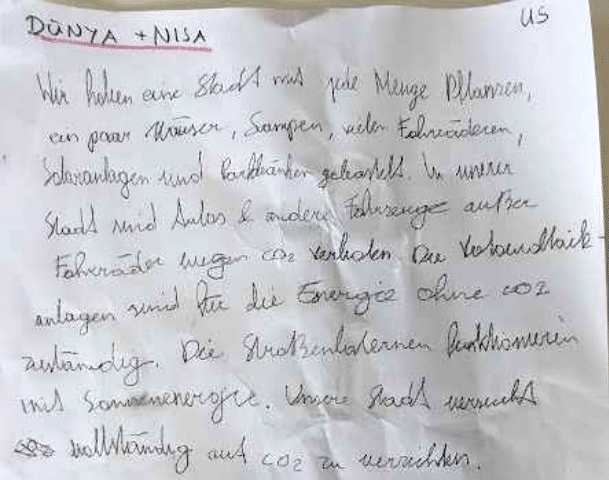 DÜNYA + NISA
US
Wir haben eine Stadt mit jede Menge Pflanzen,
ein paar Häuser, Lampen, vielen Fahrräderen,
Solaranlagen und Parkbänken gebastelt. In unserer
Stadt sind Autos & andere Fahrzeuge außer
Fahrräder wegen CO2 verboten. Die
anlagen sind für die Energie ohne CO2
zuständig. Die Straßenlaternen funktionieren
mit Sonnenenergie. Unsere Stadt versucht
vollständig auf CO2 zu verzichten.